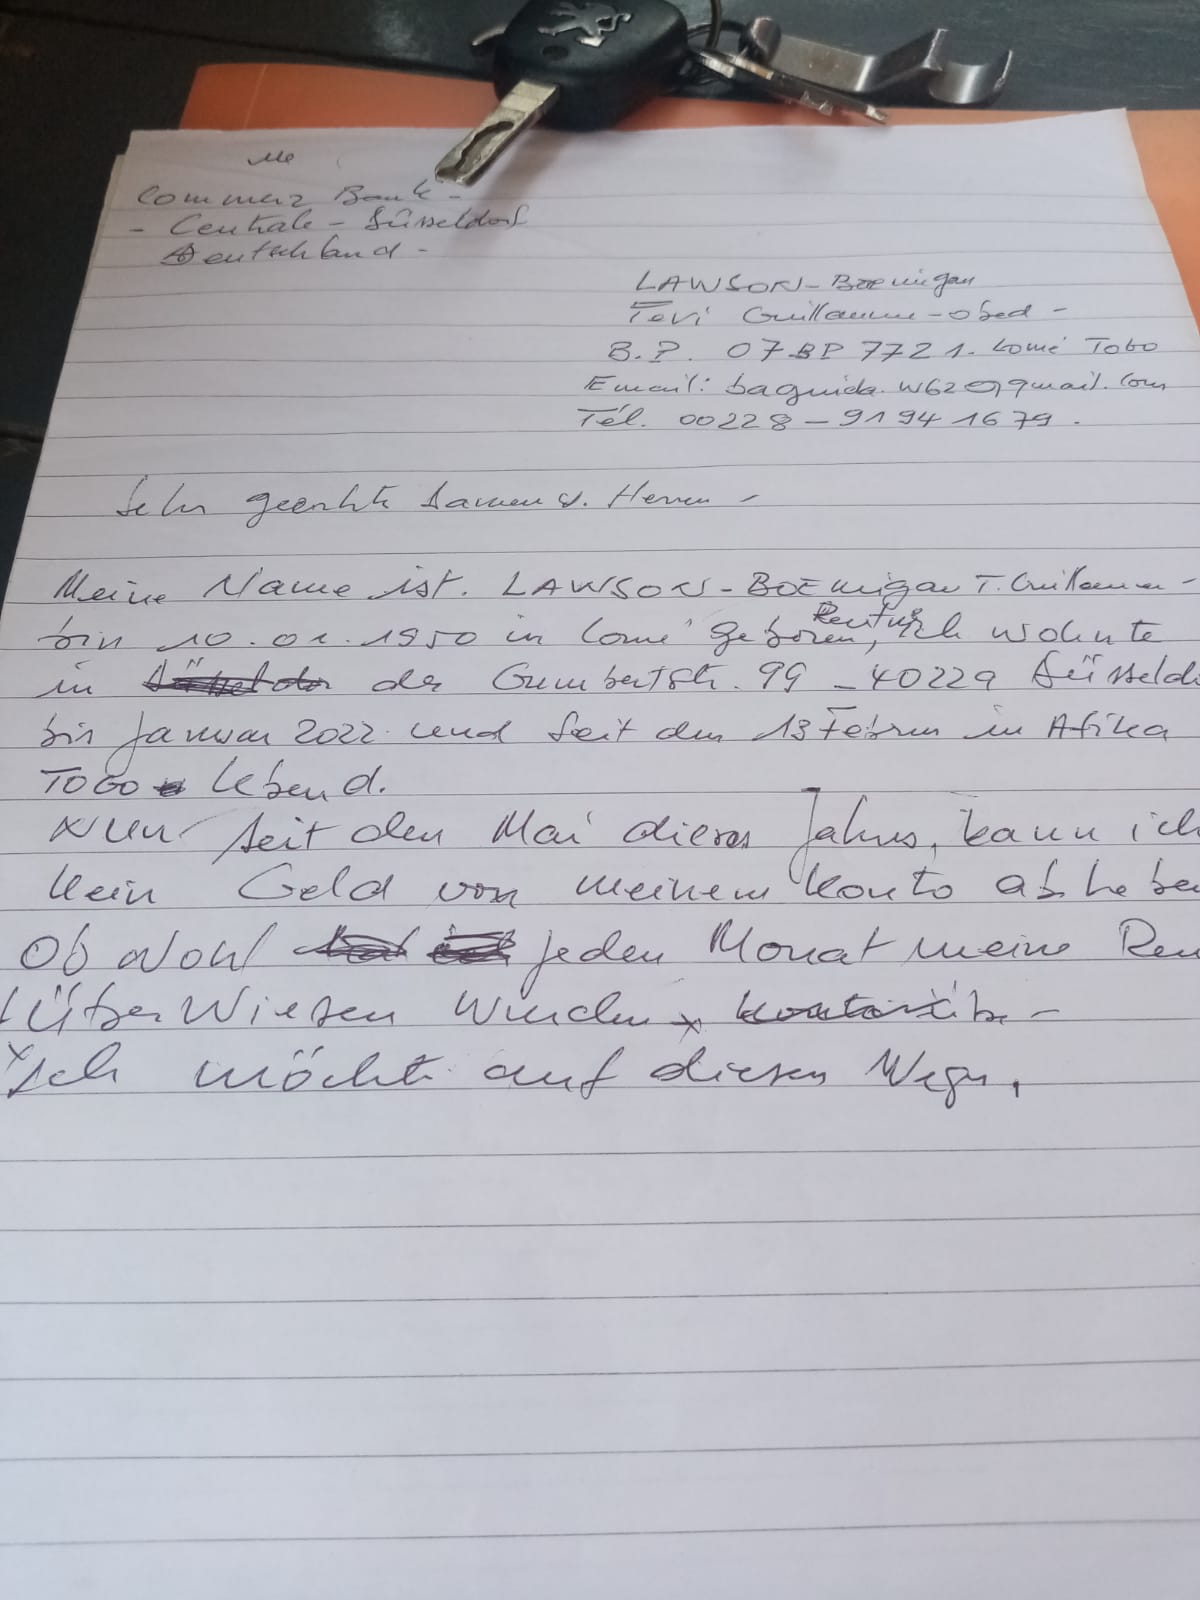 Commerz Bank -
- Centrale - Düsseldorf
Deutschland -
LAWSON - BOEvigan
Tevi Guillaume - obed -
B.P. 07 BP 7721. Lomé TOGO
Email: baguida.w620@gmail.com
Tél. 00228 - 91941679.
Sehr geerhte Damen u. Herren -
Meine Name ist. LAWSON - BOEvigan T. Guillaume -
bin 10.01.1950 in Lomé geboren, Rentner, Ich wohnte
in der Gumbertstr. 99 - 40229 Düsseld
bis Januar 2022 und seit den 13 Februr in Afrika
TOGO lebend.
NUN seit den Mai dieses Jahrs, kann ich
kein Geld von meinem Konto abhebe
Ob Wohl jeden Monat meine Ren
t Über Wiesen wurden x
x Ich möchte auf diesen Wege,